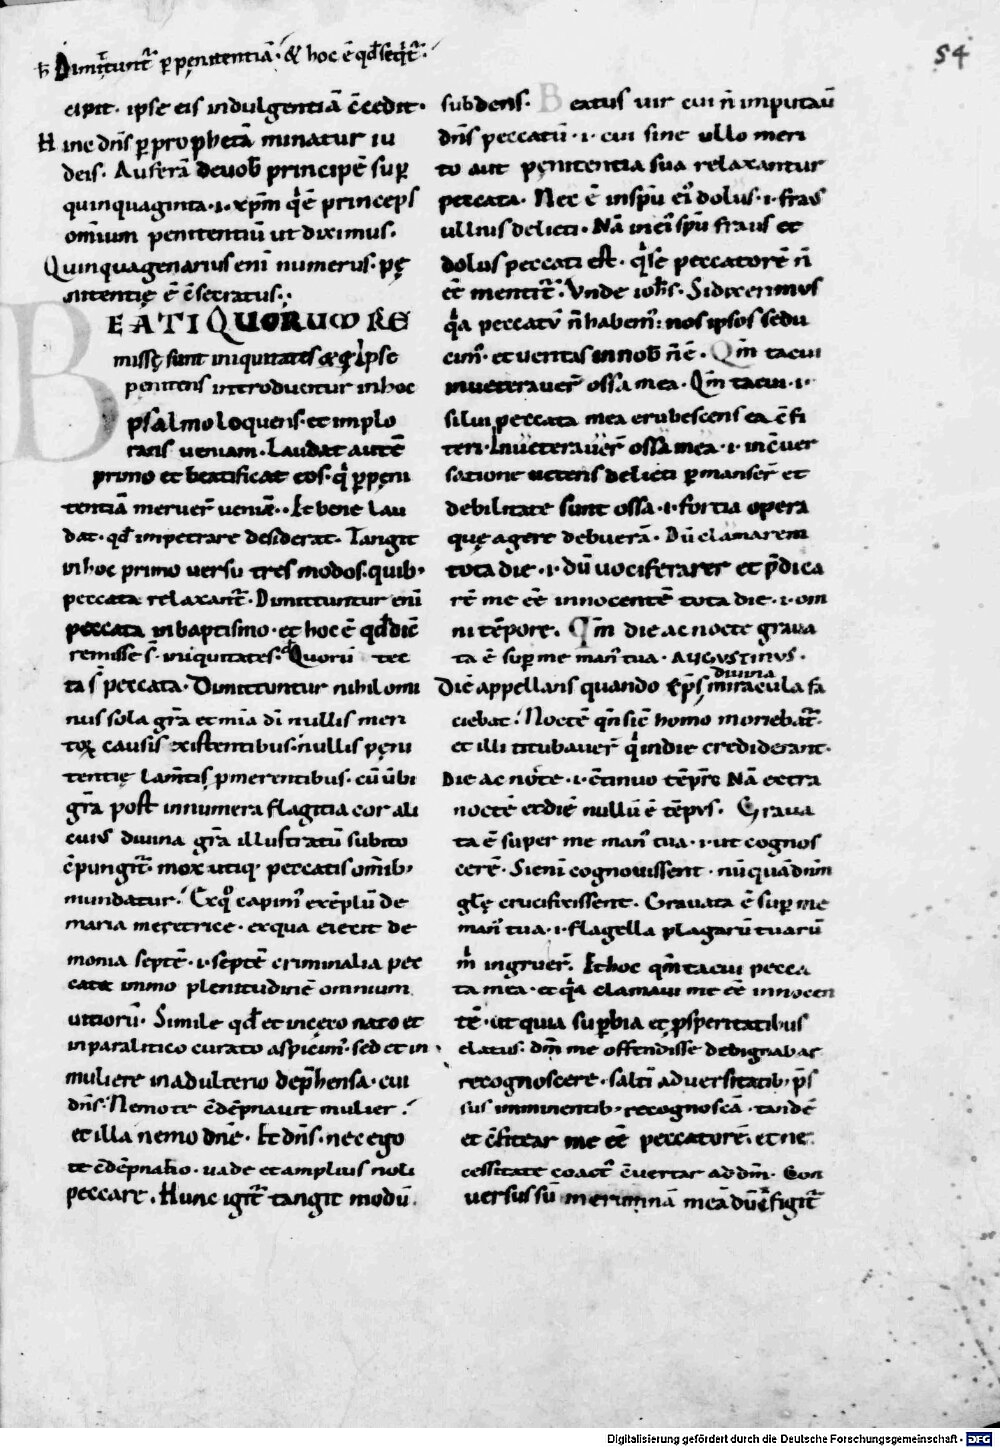 54
ħ Dimittunť p̱ pęnitentiā · & hoc ē qđ seqⁱť ·
cipit · ipse eis indulgentiā c̄cedit ·
Hinc dn̄s p̱ prophetā minatur iu
deis . Auferā de uob̄ principē sup̱
quinquaginta · i · xp̄m qⁱ ē princeps
om̄ium penitentiū ut diximus .
Quinquagenarius enī numerus · pę
nitentię ē c̄secratus ·
BEATI QUORUM RE
missę sunt iniquitates & c̄ Ipse
penitens introducitur in hoc
psalmo loquens · et implo
rans ueniam . Laudat autē
primo et beatificat eos · qⁱ p̱ pęni
tentiā meruer̄ ueniā . Et bene lau
dat · qđ impetrare desiderat . Tangit
in hoc primo uersu tres modos · quib ·
peccata relaxanť . Dimittuntur enī
peccata in baptismo · et hoc ē qđ dic̄
remisse s̄ · iniquitates · Quorū tec
ta s̄ peccata . Dimittuntur nihilomi
nus sola gr̄a et mīa dī nullis meri
toꝝ causis existentibus · nullis pęni
tentię lam̄tis p̄merentibus · cū ubi
gr̄a post innumera flagitia cor ali
cuius diuina gr̄a illustratū subito
c̄pungiť · mox utiq · peccatis om̄ib ·
mundatur . Ex qͦ capim᾽ exēplū de
maria meretrice · ex qua eiecit de
monia septē · i · septē criminalia pec
cata immo plenitudinē omnium
uitiorū . Simile qđ et in cęco nato et
in paralitico curato aspicim᾽ · sed et in
muliere in adulterio dep̄hensa · cui
dn̄s · Nemo te c̄dēpnauit mulier ·
et illa nemo dn̄e · Et dn̄s · nec ego
te c̄dēpnabo · uade et amplius noli
peccare . Hunc igiť tangit modū ·
subdens · Beatus uir cui n̄ imputauī
dn̄s peccatū · i · cui sine ullo meri
to aut pęnitentia sua relaxantur
peccata . Nec ē in spū ei᾽ dolus · i · fraus
ullius delicti . Nā in ei᾽ spū fraus et
dolus peccati est · qⁱ se peccatorē n̄
eē mentiť . Vnde ioh̄s · Si dixerimus
qͣa peccatū n̄ habem᾽ : nos ipsos sedu
cim᾽ · et ueritas in nob̄ n̄ ē . Qm̄ tacui
inueterauer̄ ossa mea . Qm̄ tacui · i ·
silui peccata mea erubescens ea c̄fi
teri · Inueterauer̄ ossa mea · i · in c̄uer
satione ueteris delicti p̱manser̄ et
debilitate sunt ossa · i · fortia opera
quę agere debuerā . Dū clamarem
tota die · i · dū uociferarer et p̄dica
rē me eē innocentē tota die · i · om
ni tēpore . Qm̄ die ac nocte graua
ta ē sup̱ me man᾽ tua · AUGVSTINVS ·
diuina
Diē appellans quando xp̄s miracula fa
ciebat · Noctē qn̄ sic̄ homo moriebať ·
et illi titubauer̄ qⁱ in die crediderant ·
Die ac nocte · i · c̄tinuo tēpr̄e Nā extra
noctē et diē nullū ē tēpus . Graua
ta ē super me man᾽ tua · i · ut cognos
cerē · Si enī cognouissent · nūquā dn̄m
glę crucifixissent . Grauata ē sup̱ me
man᾽ tua · i · flagella plagarū tuarū
mⁱ ingruer̄ . Et hoc qm̄ tacui pecca
ta mea · et qͣa clamaui me eē innocen
tē · ut quia sup̱bia et p̱speritatibus
elatus · dm̄ me offendisse dedignabar
recognoscere · saltī aduersitatib · p̄s
sus imminentib · recognoscā · tandē
et c̄fitear me eē peccatorē · et ne
cessitate coact᾽ c̄uertar ad dm̄ . Con
uersus sū in erumna mea dū c̄figiť
Digitalisierung gefördert durch die Deutsche Forschungsgemeinschaft - DFG